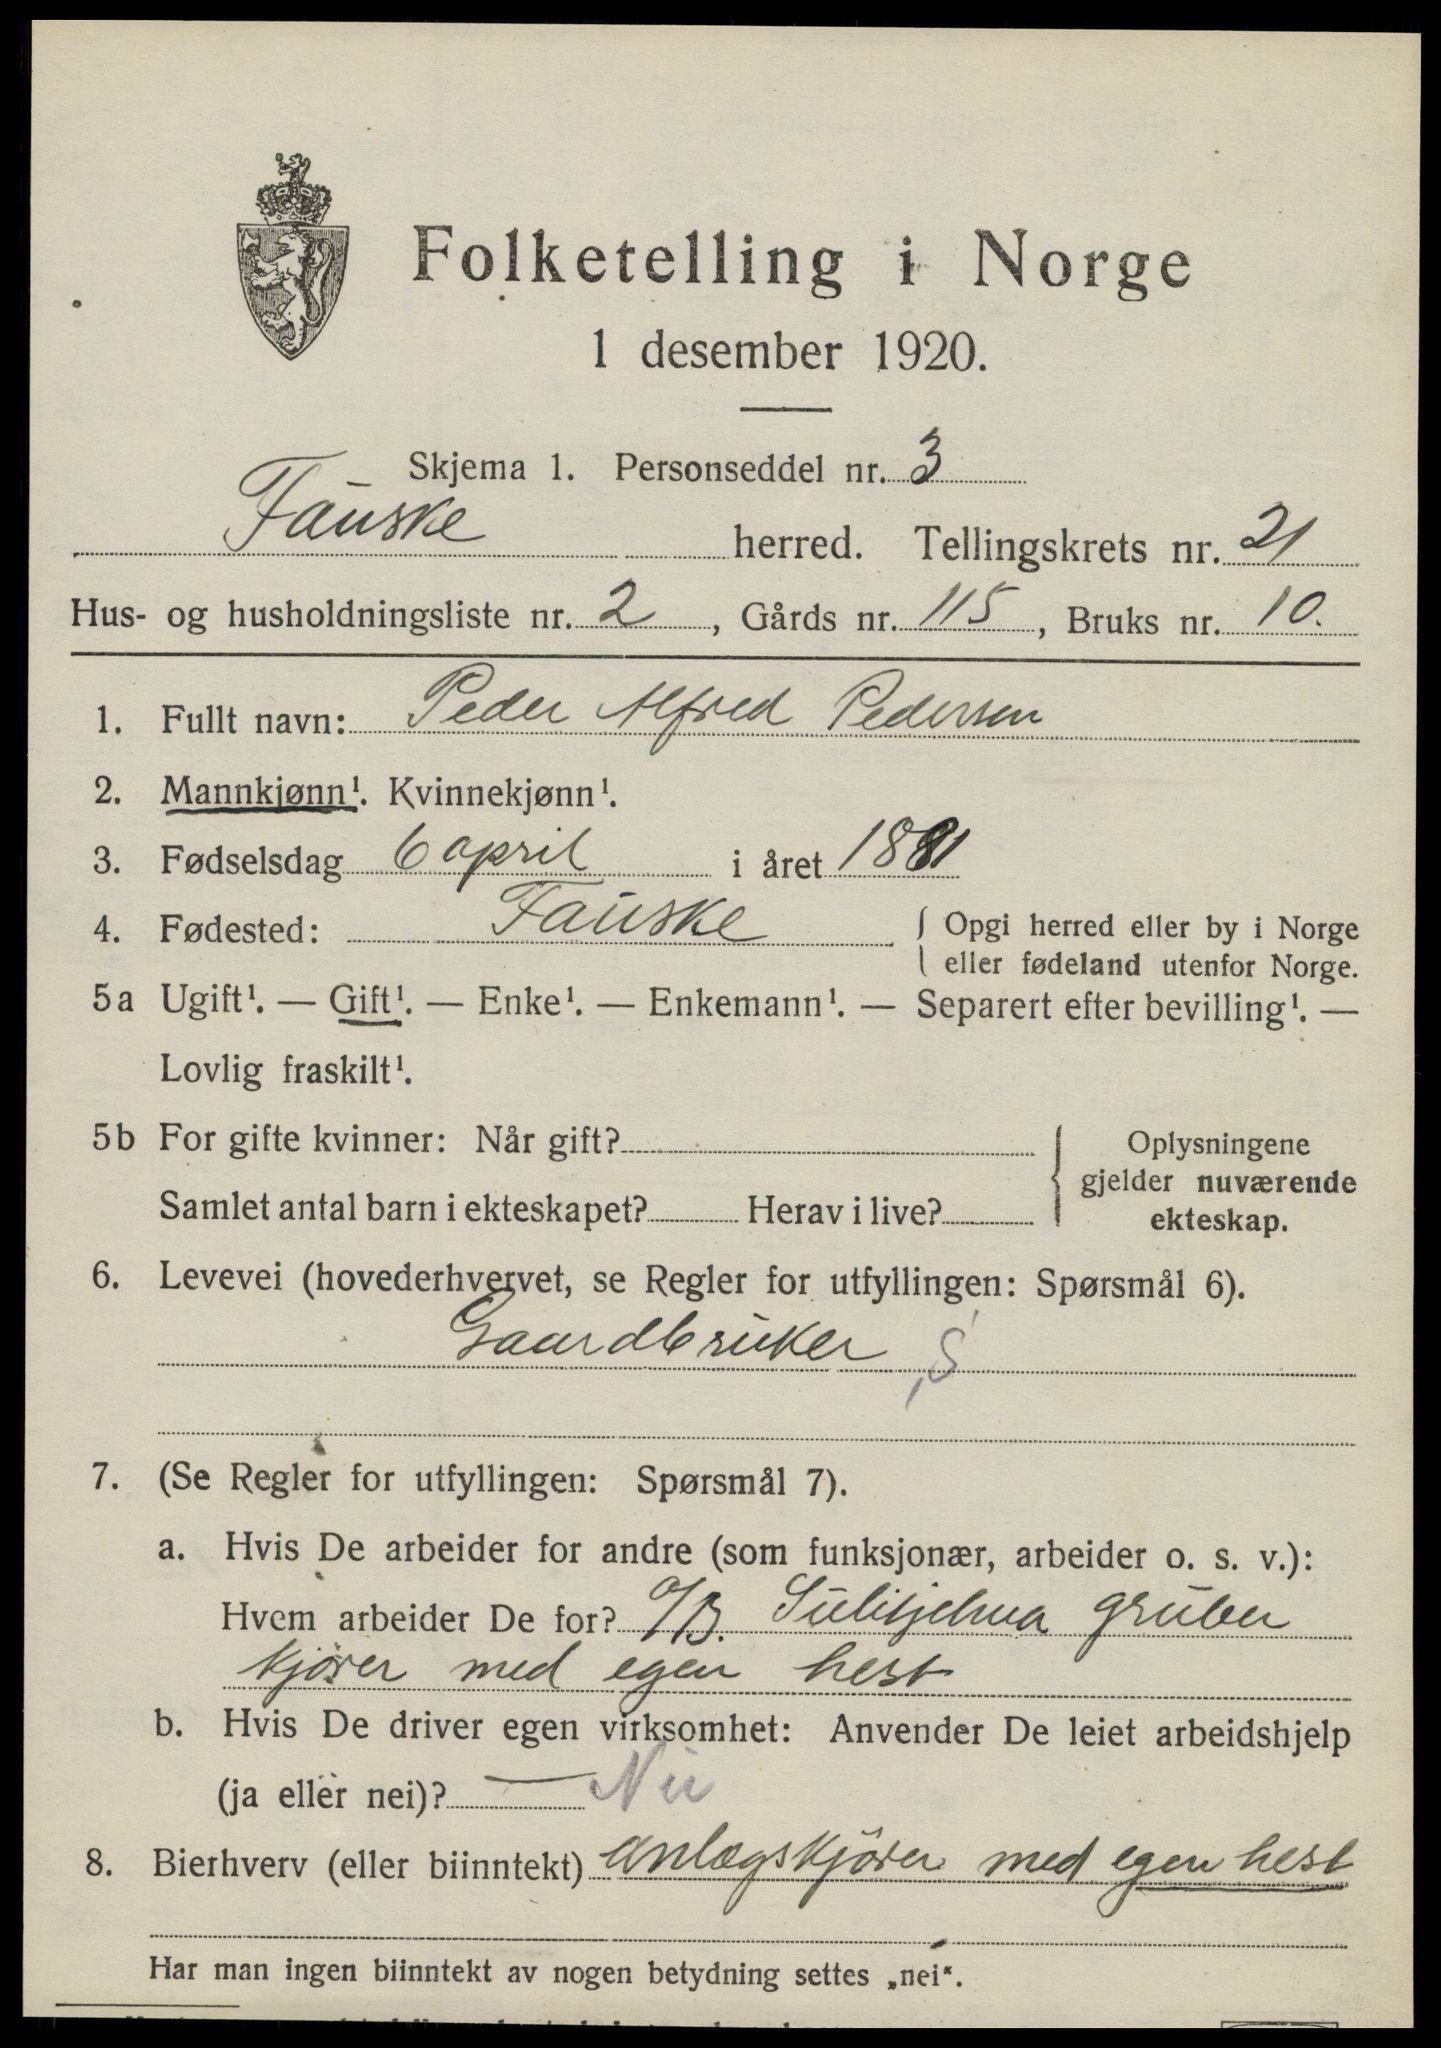 Folketelling i Norge
1 desember 1920.
Skjema 1. Personseddel nr. 3
Fauske herred. Tellingskrets nr. 21
Hus- og husholdningsliste nr. 2, Gårds nr. 115, Bruks nr. 10.
1. Fullt navn: Peder Alfred Pedersen
2. Mannkjønn¹. Kvinnekjønn¹.
3. Fødselsdag 6 april i året 1881
4. Fødested: Fauske { Opgi herred eller by i Norge
eller fødeland utenfor Norge.
5a Ugift¹. — Gift¹. — Enke¹. — Enkemann¹. — Separert efter bevilling¹. —
Lovlig fraskilt¹.
5b For gifte kvinner: Når gift? { Oplysningene
gjelder nuværende
Samlet antal barn i ekteskapet? Herav i live? ekteskap.
6. Levevei (hovederhvervet, se Regler for utfyllingen: Spørsmål 6).
Gaardbruker , S
7. (Se Regler for utfyllingen: Spørsmål 7).
a. Hvis De arbeider for andre (som funksjonær, arbeider o. s. v.):
Hvem arbeider De for? A/B. Sulitjelma gruber
kjører med egen hest
b. Hvis De driver egen virksomhet: Anvender De leiet arbeidshjelp
(ja eller nei)? — Nei
8. Bierhverv (eller biinntekt) anlægskjører med egen hest
Har man ingen biinntekt av nogen betydning settes „nei“.